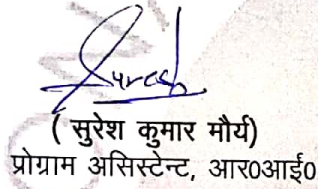 Suresh
( सुरेश कुमार मौर्य)
प्रोग्राम असिस्टेन्ट, आर0आई0